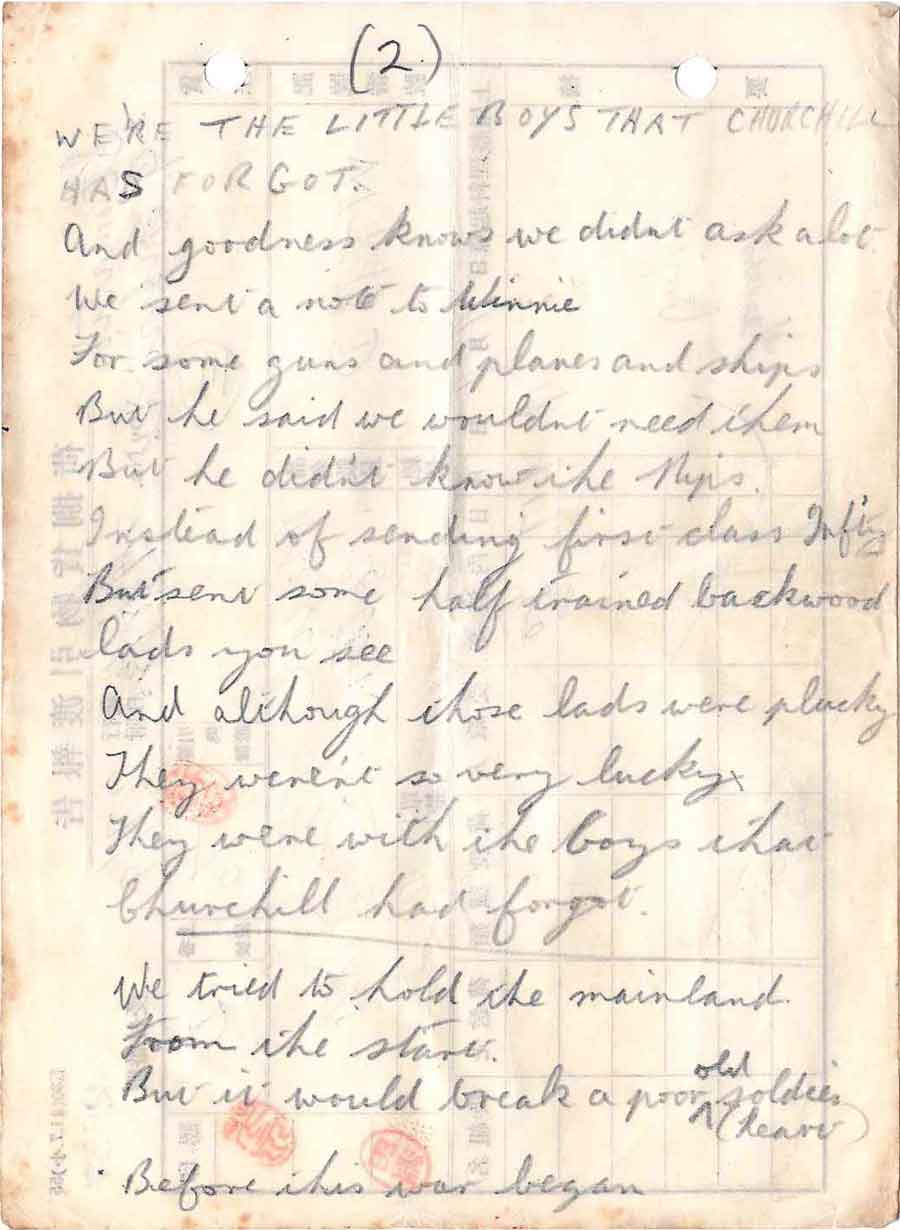 (2.)
WE'RE THE LITTLE BOYS THAT CHURCHILL
HAS FORGOT.
And goodness knows we didnt ask a lot.
We sent a note to Winnie
For some guns and planes and ships
But he said we wouldnt need them
But he didn't know the Nips.
Instead of sending first class Inf'ty
But sent some half trained backwood
lads you see
And although those lads were plucky
They weren't so very lucky
They were with the boys that
Churchill had forgot.
We tried to hold the mainland.
From the start.
But it would break a poor old soldier
(heart)
Before this war began